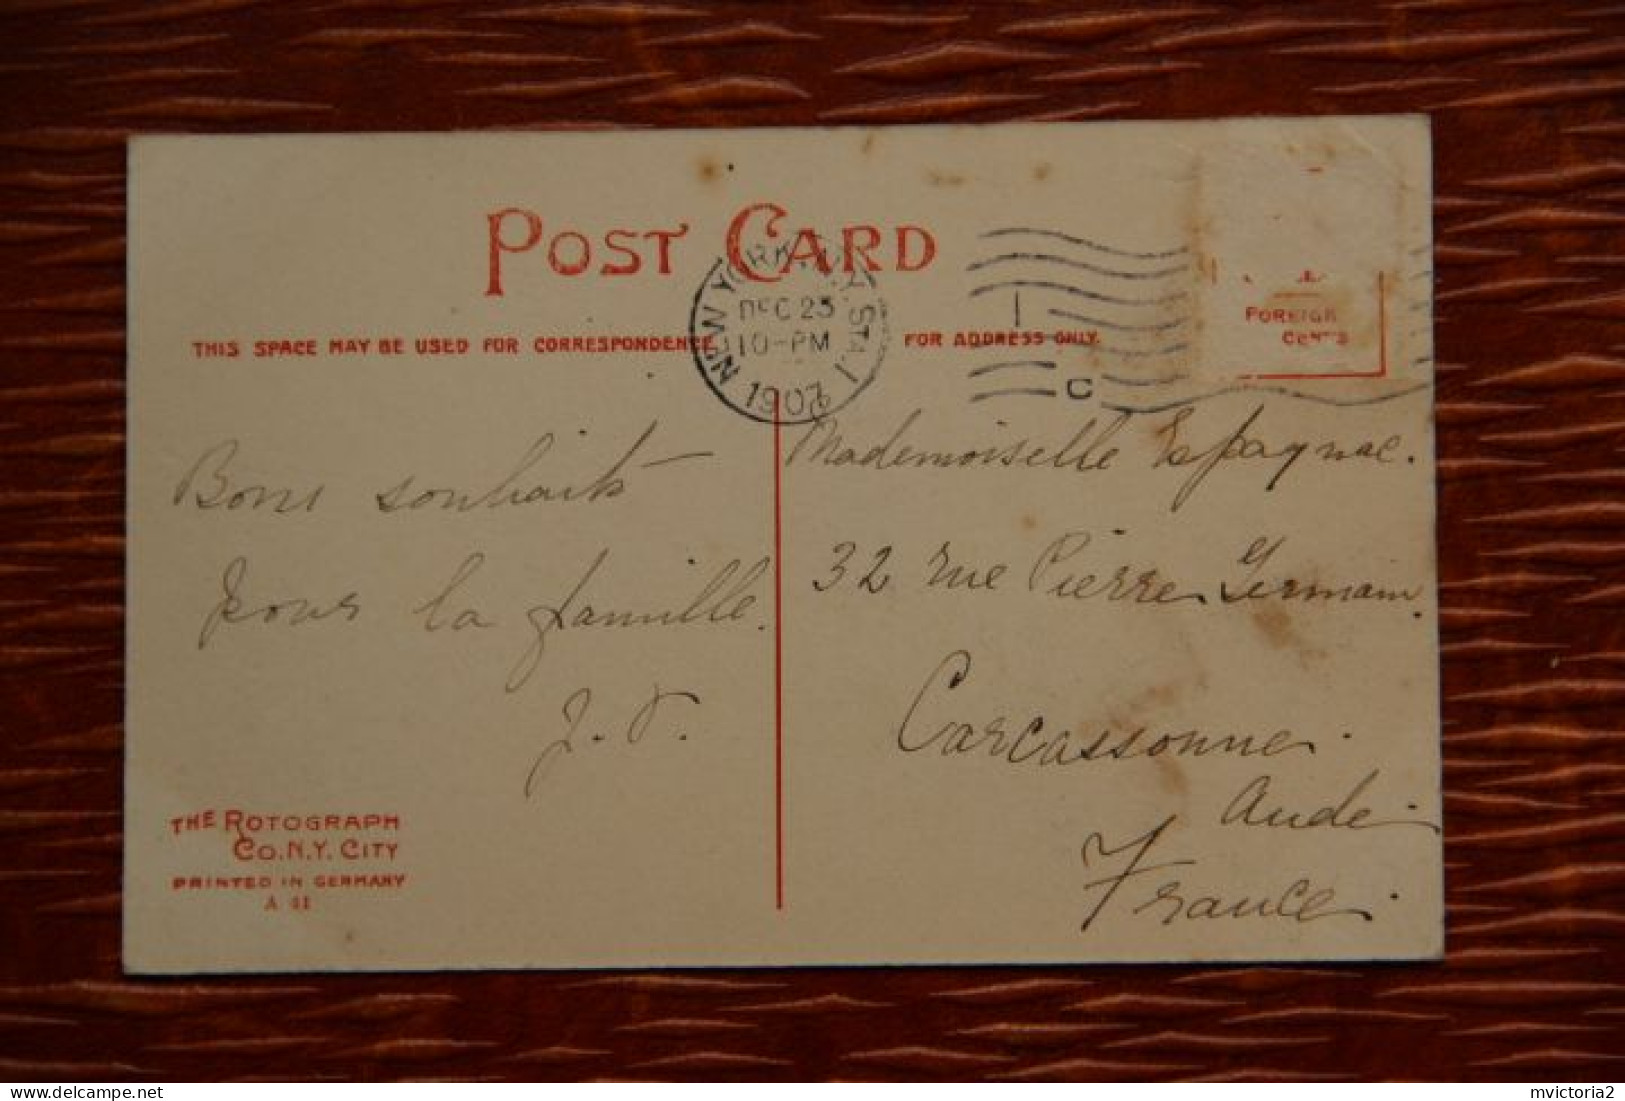 POST CARD
NEW YORK, N.Y. STA. I
DEC 23
10-PM
1907
THIS SPACE MAY BE USED FOR CORRESPONDENCE
FOR ADDRESS ONLY.
C
FOREIGN
CENTS
Bons souhaits
pour la famille.
J. V.
Mademoiselle Espagnac.
32 rue Pierre Germain.
Carcassonne.
Aude.
France.
THE ROTOGRAPH
CO. N.Y. CITY
PRINTED IN GERMANY
A 41
delcampe.net
mvictoria2